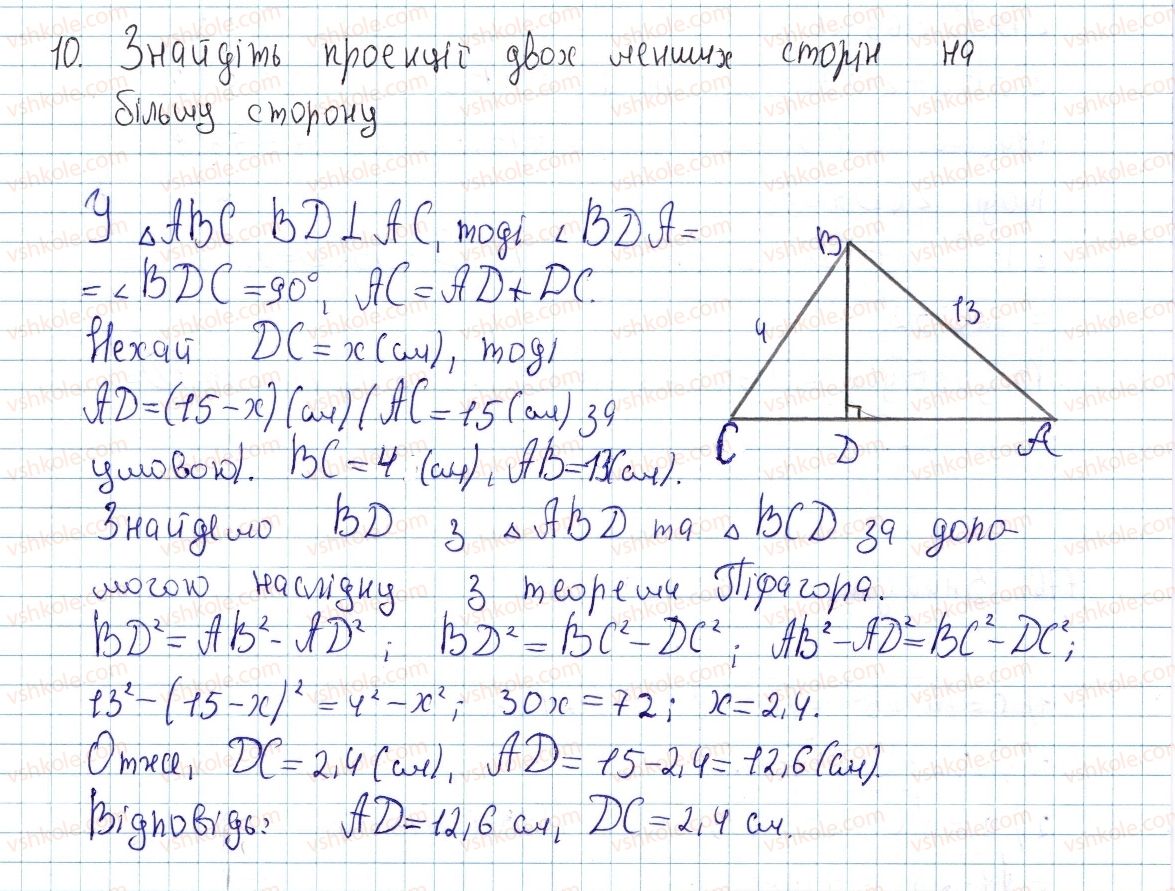 10. Знайдіть проекції двох менших сторін на
більшу сторону
У △ABC BD⊥AC, тоді ∠BDA=
=∠BDC=90°, AC=AD+DC.
Нехай DC=x(см), тоді
AD=(15-x)(см)(AC=15(см) за
умовою). BC=4 (см), AB=13(см).
Знайдемо BD з △ABD та △BCD за допо-
могою наслідку з теореми Піфагора.
BD²=AB²-AD²; BD²=BC²-DC²; AB²-AD²=BC²-DC²;
13²-(15-x)²=4²-x²; 30x=72; x=2,4.
Отже, DC=2,4(см), AD=15-2,4=12,6(см).
Відповідь: AD=12,6 см, DC=2,4 см.
B
4
13
C
D
A
vshkole.com